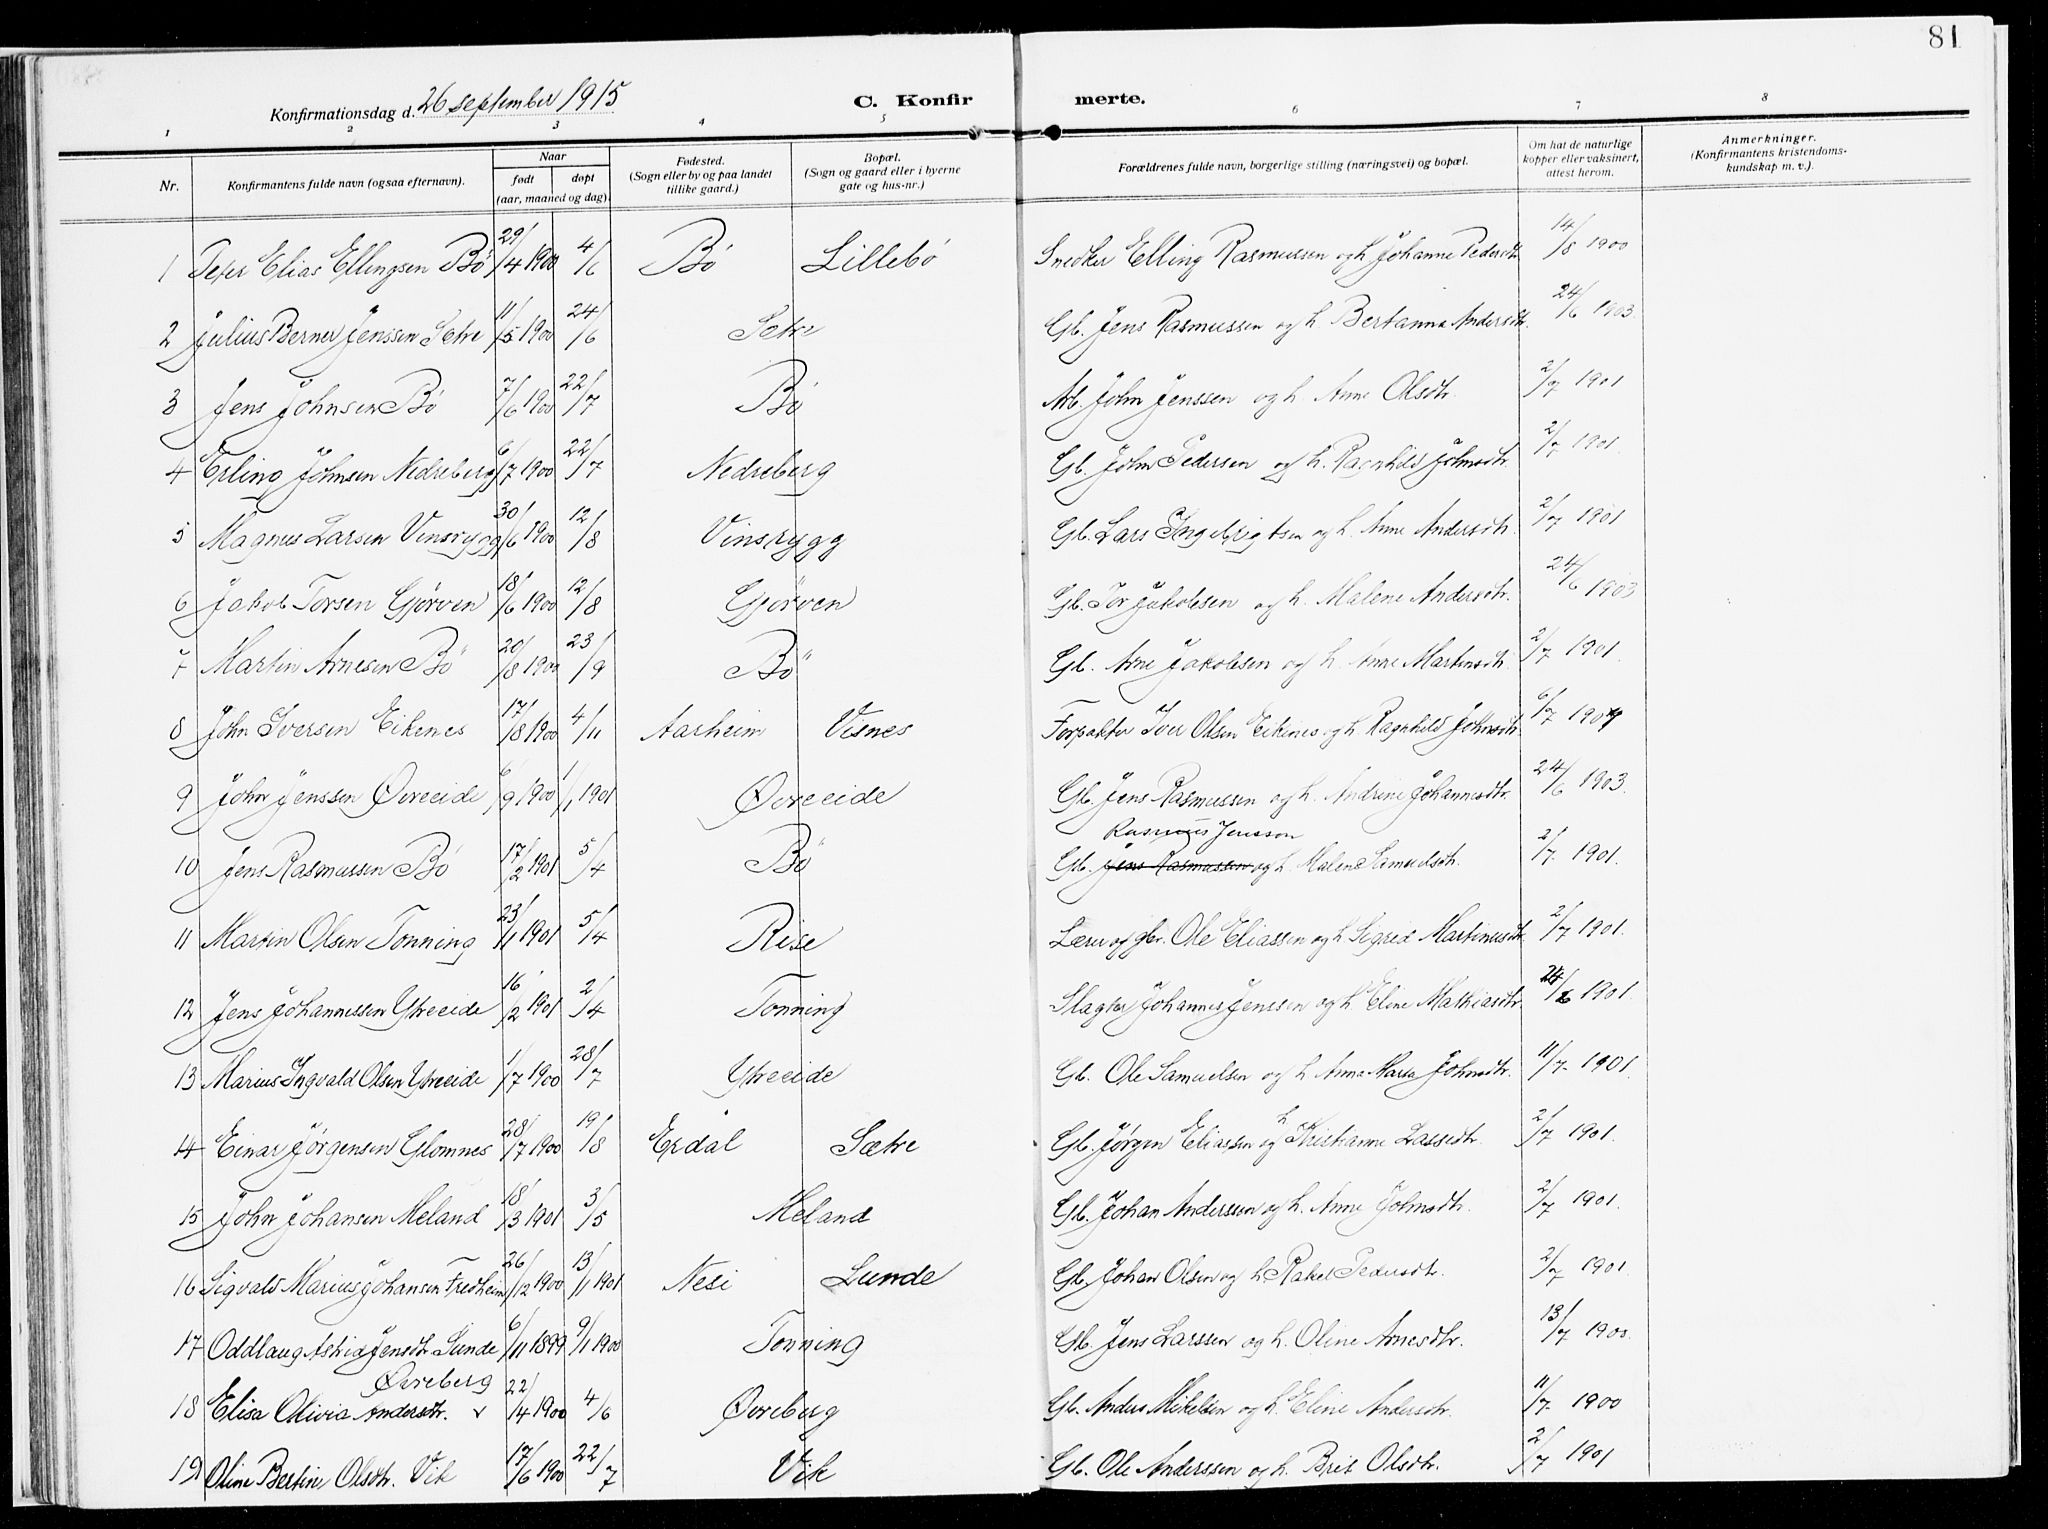 81
Konfirmationsdag d. 26 september 1915
C. Konfirmerte.
1 2 3 4 5 6 7 8
Nr. Konfirmantens fulde navn (ogsaa efternavn). Naar født døpt (aar, maaned og dag). Fødested. (Sogn eller by og paa landet tillike gaard.) Bopæl. (Sogn og gaard eller i byerne gate og hus-nr.) Forældrenes fulde navn, borgerlige stilling (næringsvei) og bopæl. Om hat de naturlige kopper eller vaksinert, attest herom. Anmerkninger. (Konfirmantens kristendoms-kundskap m. v.).
1 Peter Elias Ellingsen Bö 29/4 1900 4/6 Bö Lillebö Snedker Elling Rasmussen og h. Johanne Pedersdtr. 14/8 1900
2 Julius Berner Jenssen Sætre 11/5 1900 24/6 Sætre Gb. Jens Rasmussen og h. Bertanna Andersdtr. 24/6 1903.
3 Jens Johnsen Bö 7/6 1900 22/7 Bö Arb. John Jenssen og h. Anne Olsdtr. 2/7 1901
4 Erling Johnsen Nedreberg 6/7 1900 22/7 Nedreberg Gb. John Pedersen og h. Ragnhild Johnsdtr. 2/7 1901
5 Magnus Larsen Vinsrygg 30/6 1900 12/8 Vinsrygg Gb. Lars Ingebrigtsen og h. Anne Andersdtr. 2/7 1901
6 Jakob Torsen Gjørven 18/6 1900 12/8 Gjørven Gb. Tor Jakobsen og h. Malene Andersdtr. 24/6 1903
7 Martin Arnesen Bö 20/8 1900 23/9 Bö Gb. Arne Jakobsen og h. Anne Martinsdtr. 2/7 1901.
8 John Iversen Eikenes 17/8 1900 4/11 Aarheim Visnes Forpakter Iver Olsen Eikenes og h. Ragnhild Johnsdtr. 6/7
9 John Jenssen Øvreeide 6/9 1900 1/1 1901 Øvreeide Gb. Jens Rasmussen og h. Andrine Johannesdtr. 24/6 1903.
Rasmus Jensson
10 Jens Rasmussen Bö 17/2 1901 5/4 Bö Gb. Jens Rasmussen og h. Malene Samuelsdtr. 2/7 1901.
11 Martin Olsen Tonning 23/1 1901 5/4 Rise Lærer og gbr. Ole Eliassen og h. Sigrid Martinusdtr. 2/7 1901.
12 Jens Johannessen Ytreeide 16/2 1901 2/4 Tonning Slagter Johannes Jenssen og h. Eline Mathiasdtr. 24/6 1901.
13 Marius Ingvald Olsen Ytreeide 1/7 1900 28/7 Ytreeide Gb. Ole Samuelsen og h. Anne Marta Johnsdtr. 11/7 1901.
14 Einar Jörgensen Glomnes 28/7 1900 19/8 Erdal Sætre Gb. Jörgen Eliassen og h. Kristianne Lassedtr. 2/7 1901.
15 John Johansen Meland 18/3 1901 3/5 Meland Gb. Johan Anderssen og h. Anne Johnsdtr. 2/7 1901.
16 Sigvald Marius Johansen Fredheim 26/12 1900 13/1 1901 Nesi Lunde Gb. Johan Olsen og h. Rakel Pedersdtr. 2/7 1901
17 Oddlaug Astrid Jensdtr. Sunde 6/11 1899 9/1 1900 Tonning Gb. Jens Larssen og h. Oline Arnesdtr. 13/7 1900.
Øvreberg
18 Elisa Olivia Andersdtr. v 22/4 1900 4/6 Øvreberg Gb. Anders Mikelsen og h. Eline Andersdtr. 11/7 1900
19 Oline Bertine Olsdtr. Vik 17/6 1900 22/7 Vik Gb. Ole Anderssen og h. Brit Olsdtr. 2/7 1901